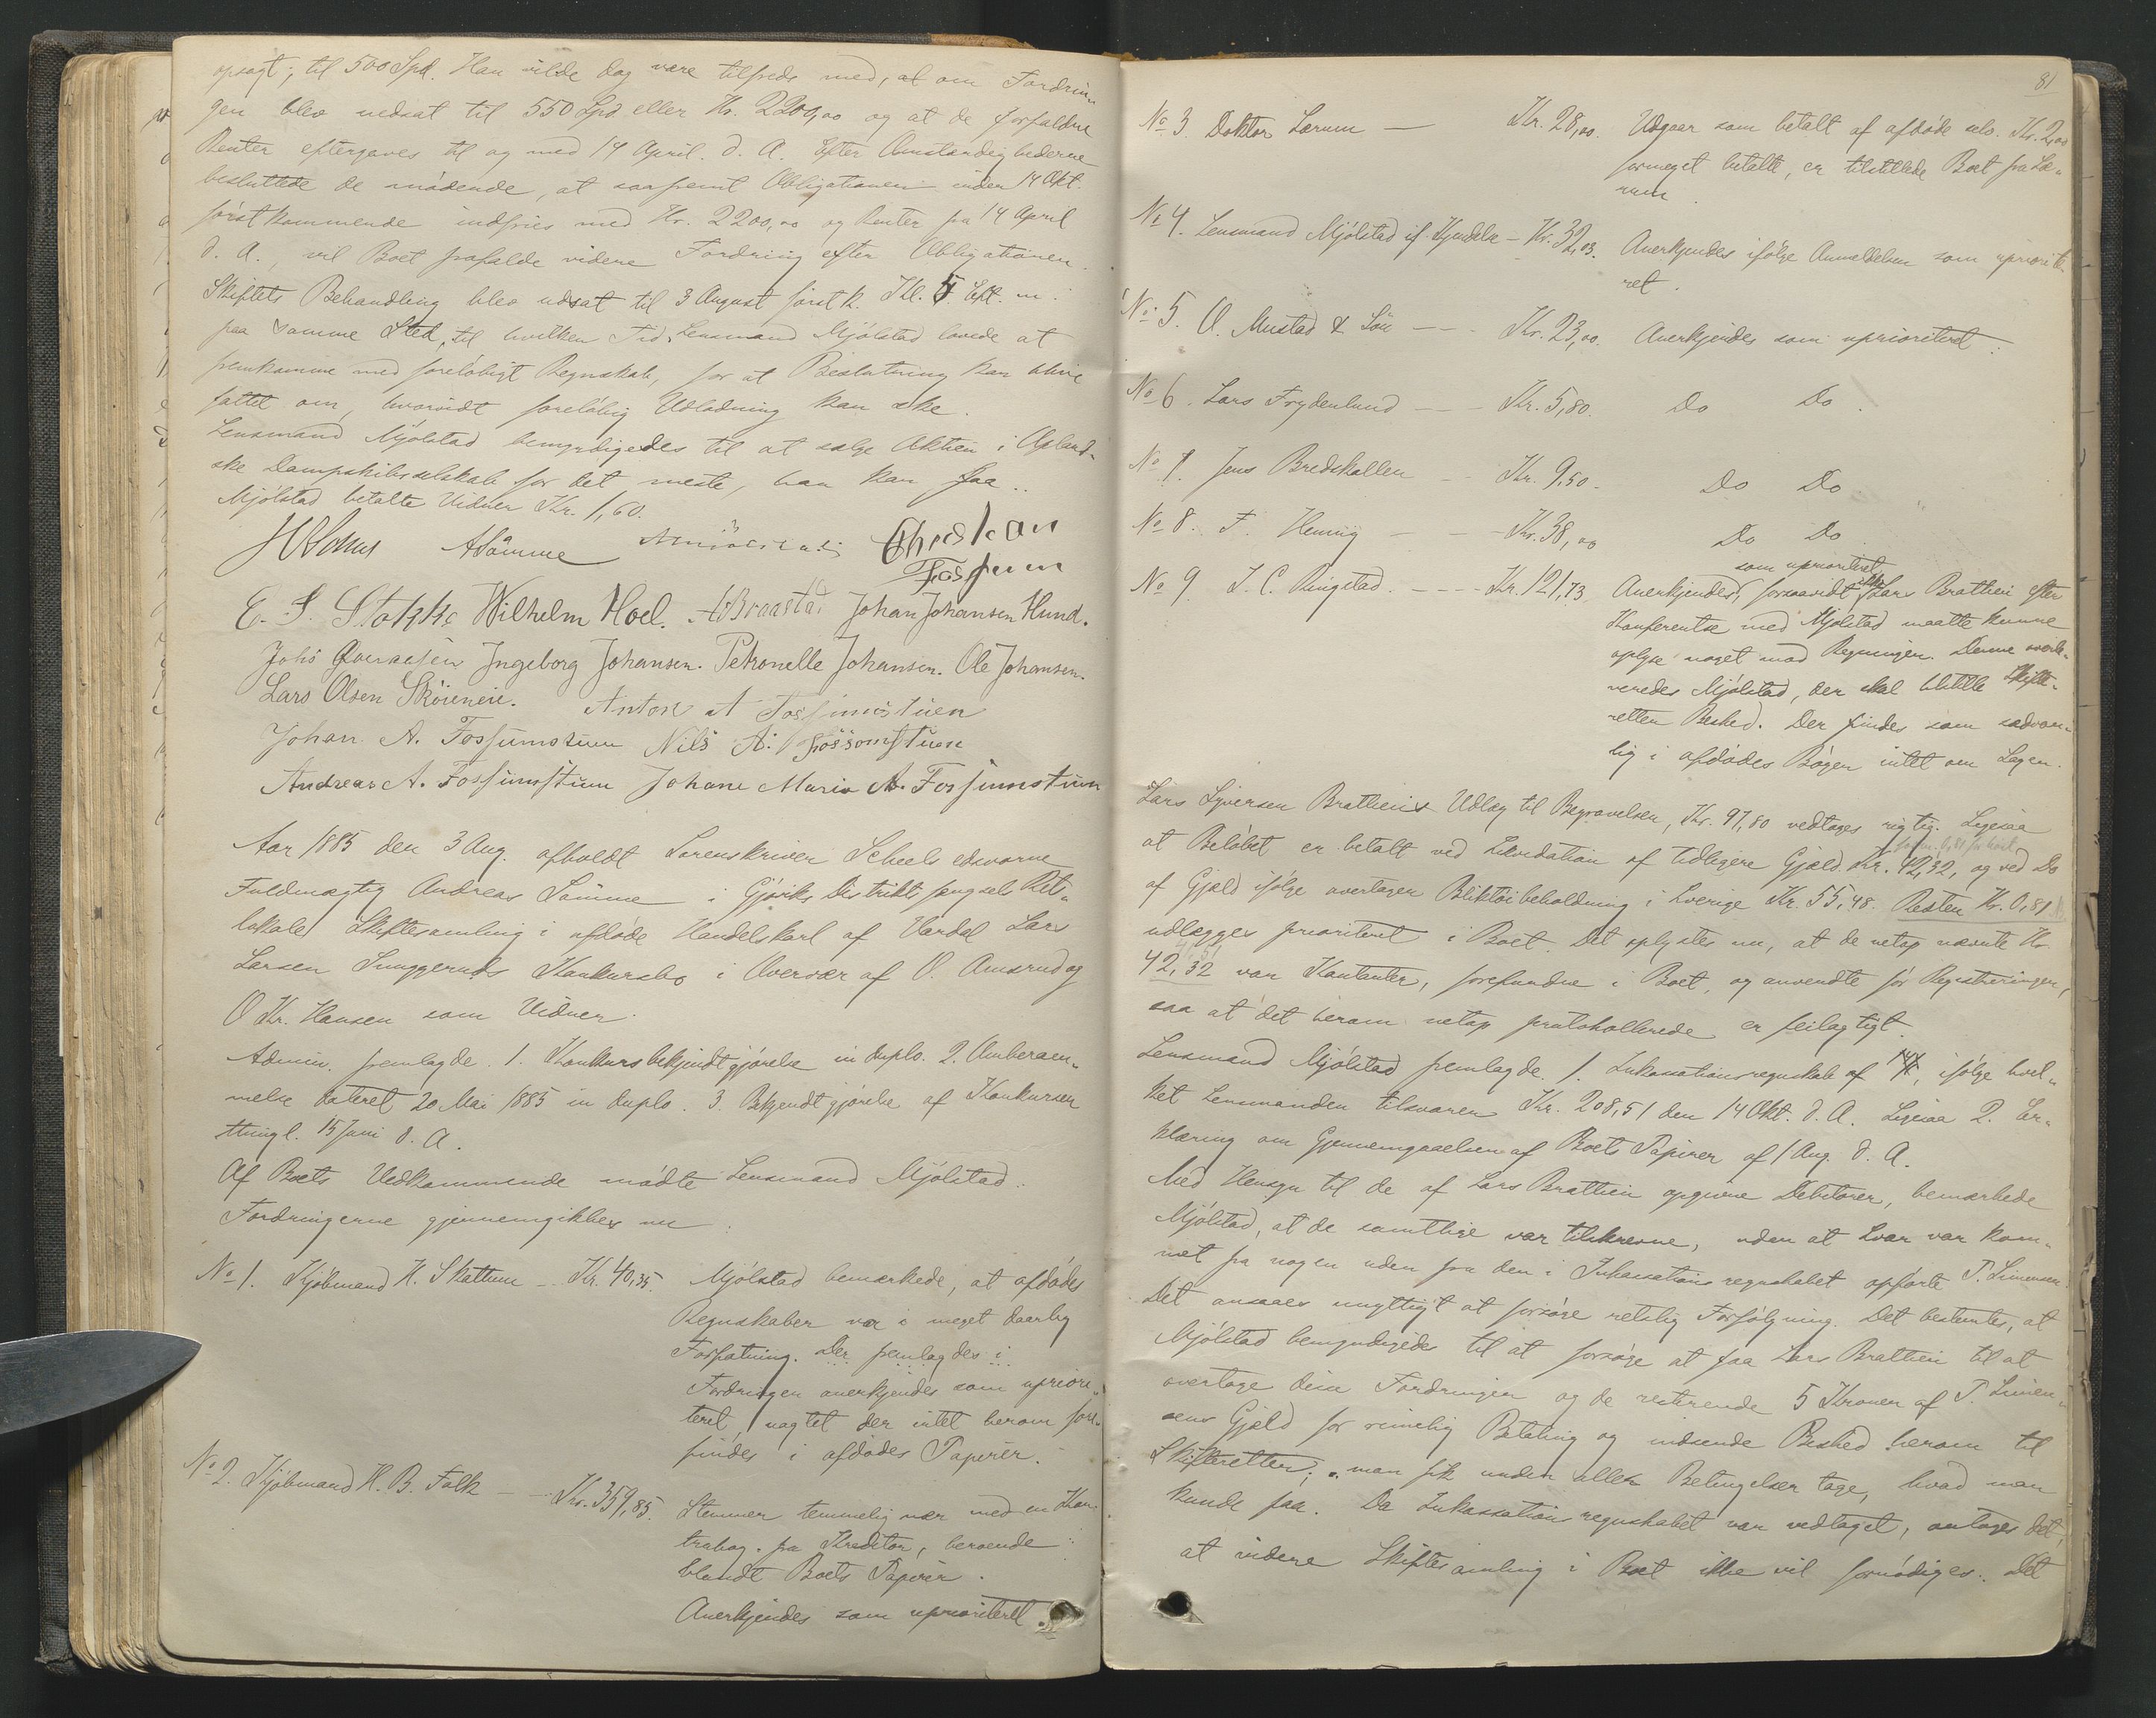 opsagt, til 500 Spd. Han vilde dog være tilfreds med, at om Fordrin-
gen blev nedsat til 550 Spd. eller Kr. 2200,00 og at de forfaldne
Renter eftergaves til og med 14 April. d. A. Efter Omstændighederne
besluttede de mødende, at saafremt Obligationen inden 14 Okt.
førstkommende indfries med Kr. 2200,00 og Renter fra 14 April
d. A., vil Boet frafalde videre Fordring efter Obligationen.
Skiftets Behandling blev udsat til 3 August førstk. Kl. 5 Eft. m.
paa samme Sted, til hvilken Tid Lensmand Mjølstad lovede at
fremkomme med foreløbigt Regnskab, for at Beslutning kan blive
fattet om, hvorvidt foreløbig Udlodning kan ske.
Lensmand Mjølstad bemyndigedes til at sælge Aktien i Opland-
ske Dampskibsselskab for det meste, han kan faa.
Mjølstad betalte Vidner Kr. 1,60.
ASömme Christian
Fossum
E. S. Stokke Wilhelm Hoel. ABraastad Johan Johansen Hund.
Johs Ingeborg Johansen. Petronelle Johansen. Ole Johansen.
Lars Olsen Anton A Fossumstuen
Johan A. Fossumstuen Nils A. Fossomstuen
Andreas A. Fossumstuen Johane Marie A. Fossumstuen
Aar 1885 den 3 Aug. afholdt Sorenskriver Scheels edsvorne
Fuldmægtig Andreas Sömme i Gjøviks Distriktsfængsels Ret-
lokale Skiftesamling i afdøde Handelskarl af Vardal Lars
Larsen Snuggeruds Konkursbo i Overvær af O. Amsrud og
O Kr. Hansen som Vidner.
Admin. fremlagde. 1. Konkursbekjendtgjørelse in duplo. 2. Omberam-
melse dateret 20 Mai 1885 in duplo. 3. Bekjendtgjørelse af Konkursen
thingl. 15 Juni d. A.
Af Boets Vedkommende mødte Lensmand Mjølstad.
Fordringerne gjennemgikkes nu.
No 1. Kjøbmand H. Skattum - Kr. 40,35. Mjølstad bemærkede, at afdødes
Regnskaber var i meget daarlig
Forfatning. Der fremlagdes i
Fordringen anerkjendes som upriori-
teret, uagtet der intet herom fore-
findes i afdødes Papirer.
No 2. Kjøbmand H. B. Falk - Kr. 359,85. Stemmer temmelig nær med en Kon-
trabog. fra Kreditor, beroende
blandt Boets Papirer.
Anerkjendes som uprioriteret.
81
No 3. Doktor Lærum - Kr. 28,00. Udgaar som betalt af afdøde selv. Kr. 2,00
formeget betalte, er tilstillede Boet fra Læ-
rum.
No 4. Lensmand Mjølstad if. Kjendelse - Kr. 32,03. Anerkjendes ifølge Anmeldelsen som upriorite-
ret.
No 5. O. Mustad & Søn - Kr. 23,00. Anerkjendes som uprioriteret.
No 6. Lars Frydenlund - Kr. 5,80. Do Do.
No 7. Jens Bredskallen - Kr. 9,50. Do Do
No 8. F. Hennig - Kr. 38,00 Do Do.
som uprioriteret
No 9 J. C. Ringstad. - Kr. 121,73 Anerkjendes, forsaavidt ikke Lars Brattlien efter
Konferentse med Mjølstad maatte kunne
oplyse noget mod Regningen. Denne overle-
veredes Mjølstad, der skal tilstille Skifte-
retten Besked. Der findes som sædvan-
lig i afdødes Bøger intet om Sagen.
Lars Syversen Brattliens Udlæg til Begravelsen, Kr. 97,80 vedtages rigtig. Ligesaa
at Beløbet er betalt ved Likvidation af tidligere Gjæld Kr. 42,32, og ved Do
af Gjæld ifølge overtagen Bliktøibeholdning i Sverige Kr. 55,48. Resten Kr. 0,81
udlægges prioriteret i Boet. Det oplystes nu, at de netop nævnte Kr.
42,32 var Kontanter, forefundne i Boet, og anvendte før Registreringen,
saa at det herom netop protokollerede er feilagtigt.
Lensmand Mjølstad fremlagde. 1. Inkassationsregnskab af ifølge hvil-
ket Lensmanden tilsvarer Kr. 208,51 den 14 Okt. d. A. Ligesaa 2. Er-
klæring om Gjennemgaaelsen af Boets Papirer af 1 Aug. d. A.
Med Hensyn til de af Lars Brattlien opgivne Debitorer, bemærkede
Mjølstad, at de samtlige var tilskrevne, uden at Svar var kom-
met fra nogen uden fra den i Inkassationsregnskabet opførte P. Simensen.
Det ansaaes unyttigt at forsøge retslig Forfølgning. Det bestemtes, at
Mjølstad bemyndigedes til at forsøge at faa Lars Brattlien til at
overtage disse Fordringer og de resterende 5 Kroner af P. Simen-
sens Gjæld for rimelig Betaling og indsende Besked herom til
Skifteretten; man fik under alle Betingelser tage, hvad man
kunde faa. Da Inkassationsregnskabet var vedtaget, antages det,
at videre Skiftesamling i Boet ikke vil fornødiges. Det